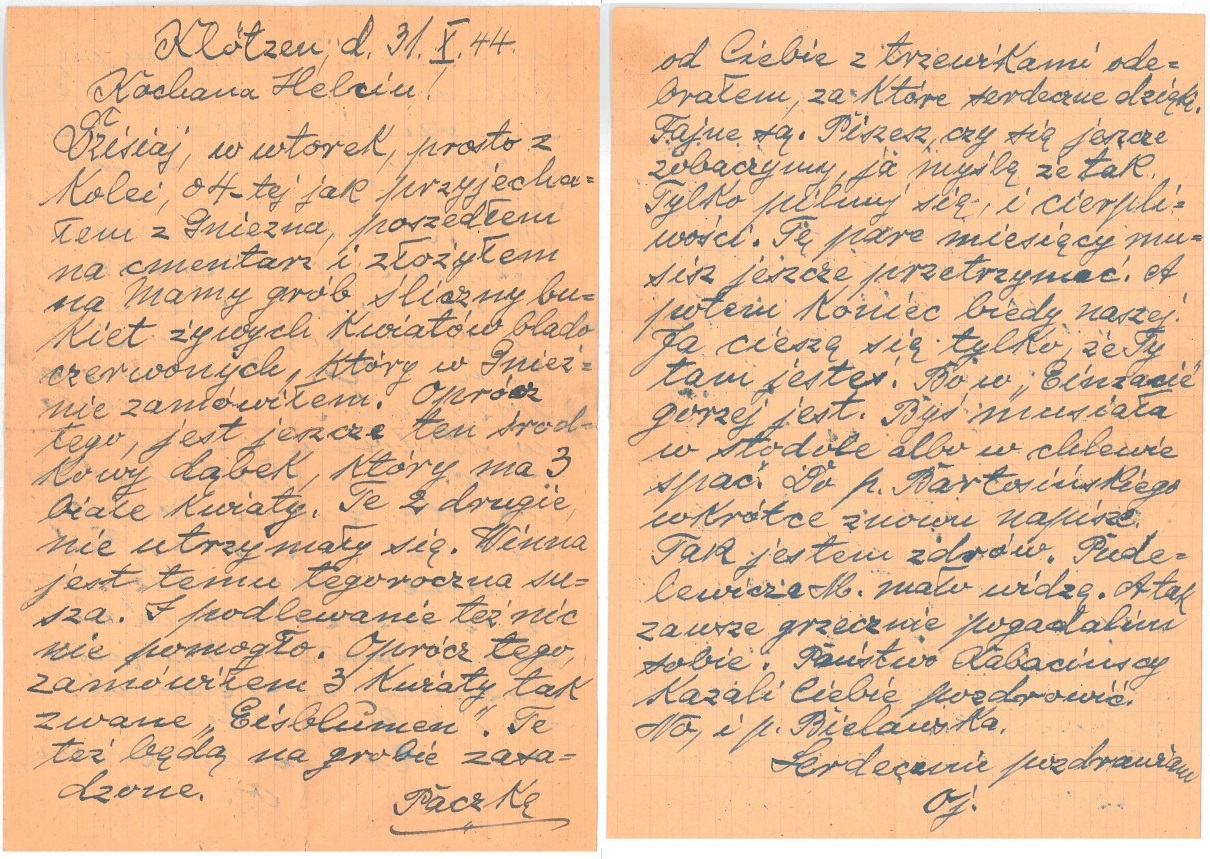 Klötzen, d. 31. X. 44.
Kochana Helciu!
Dzisiaj, w wtorek, prosto z
Kolei, o 4-tej jak przyjecha=
łem z Gniezna, poszedłem
na cmentarz i złożyłem
na Mamy grób śliczny bu=
kiet żywych kwiatów blado
czerwonych, który w Gnieź=
nie zamówiłem. Oprócz
tego, jest jeszcze ten środ-
kowy dąbek, który ma 3
białe kwiaty. Te 2 drugie,
nie utrzymały się. Winna
jest temu tegoroczna su=
sza. I podlewanie też nic
nie pomogło. Oprócz tego,
zamówiłem 3 kwiaty, tak
zwane „Eisblumen". Te
też będą na grobie zasa=
dzone. Paczkę
od Ciebie z trzewikami ode=
brałem, za które serdeczne dzięki.
Fajne są. Piszesz, czy się jeszcze
zobaczymy, ja myślę że tak.
Tylko pilnuj się, i cierpli=
wości. Tę parę miesięcy mu=
sisz jeszcze przetrzymać. A
potem koniec biedy naszej!
Ja cieszę się tylko, że Ty
tam jesteś. Bo w „Einzacie
gorzej jest. Byś musiała
w stodole albo w chlewie
spać. Do p. Bartosińskiego
wkrótce znowu napiszę.
Tak jestem zdrów. Pude=
lewicza M. mało widzę. A tak
zawsze grzecznie pogadalim
sobie. Państwo Kabacińscy
kazali Ciebie pozdrowić.
No, i p. Bielawska.
Serdecznie pozdrawiam
Oj.